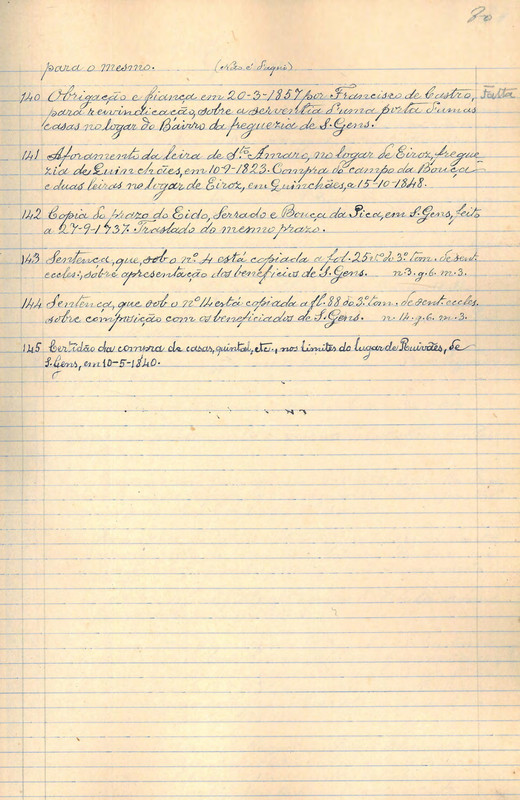 20
para o mesmo. (Não é daqui)
140 Obrigação e fiança em 20-3-1857 por Francisco de Castro, Falta
para reivindicação, sobre a serventia d'uma porta d'umas
casas no logar do Bairro da freguezia de S. Gens.
141 Aforamento da leira de Sto Amaro, no logar de Eiroz, fregue
zia de Quinchães, em 10-9-1823. Compra do campo da Bouça
e duas leiras no logar de Eiroz, em Quinchães, a 15-10-1848.
142 Copia do prazo do Eido, Serrado e Bouça da Pica, em S. Gens, feito
a 27-9-1737. Traslado do mesmo prazo.
143 Sentença, que, sob o nº 4 está copiada a fol. 25 vº do 3º tom. de sent.
eccles., sobre apresentação dos beneficios de S. Gens. n. 3. g. 6. m. 3.
144 Sentença, que sob o nº 14 está copiada a fl. 88 do 3º tom. de sent. eccles.
sobre composição com os beneficiados de S. Gens. n. 14. g. 6. m. 3.
145 Certidão da compra de casas, quintal, etc., nos limites do lugar de Ruivães, de
S. Gens, em 10-5-1840.